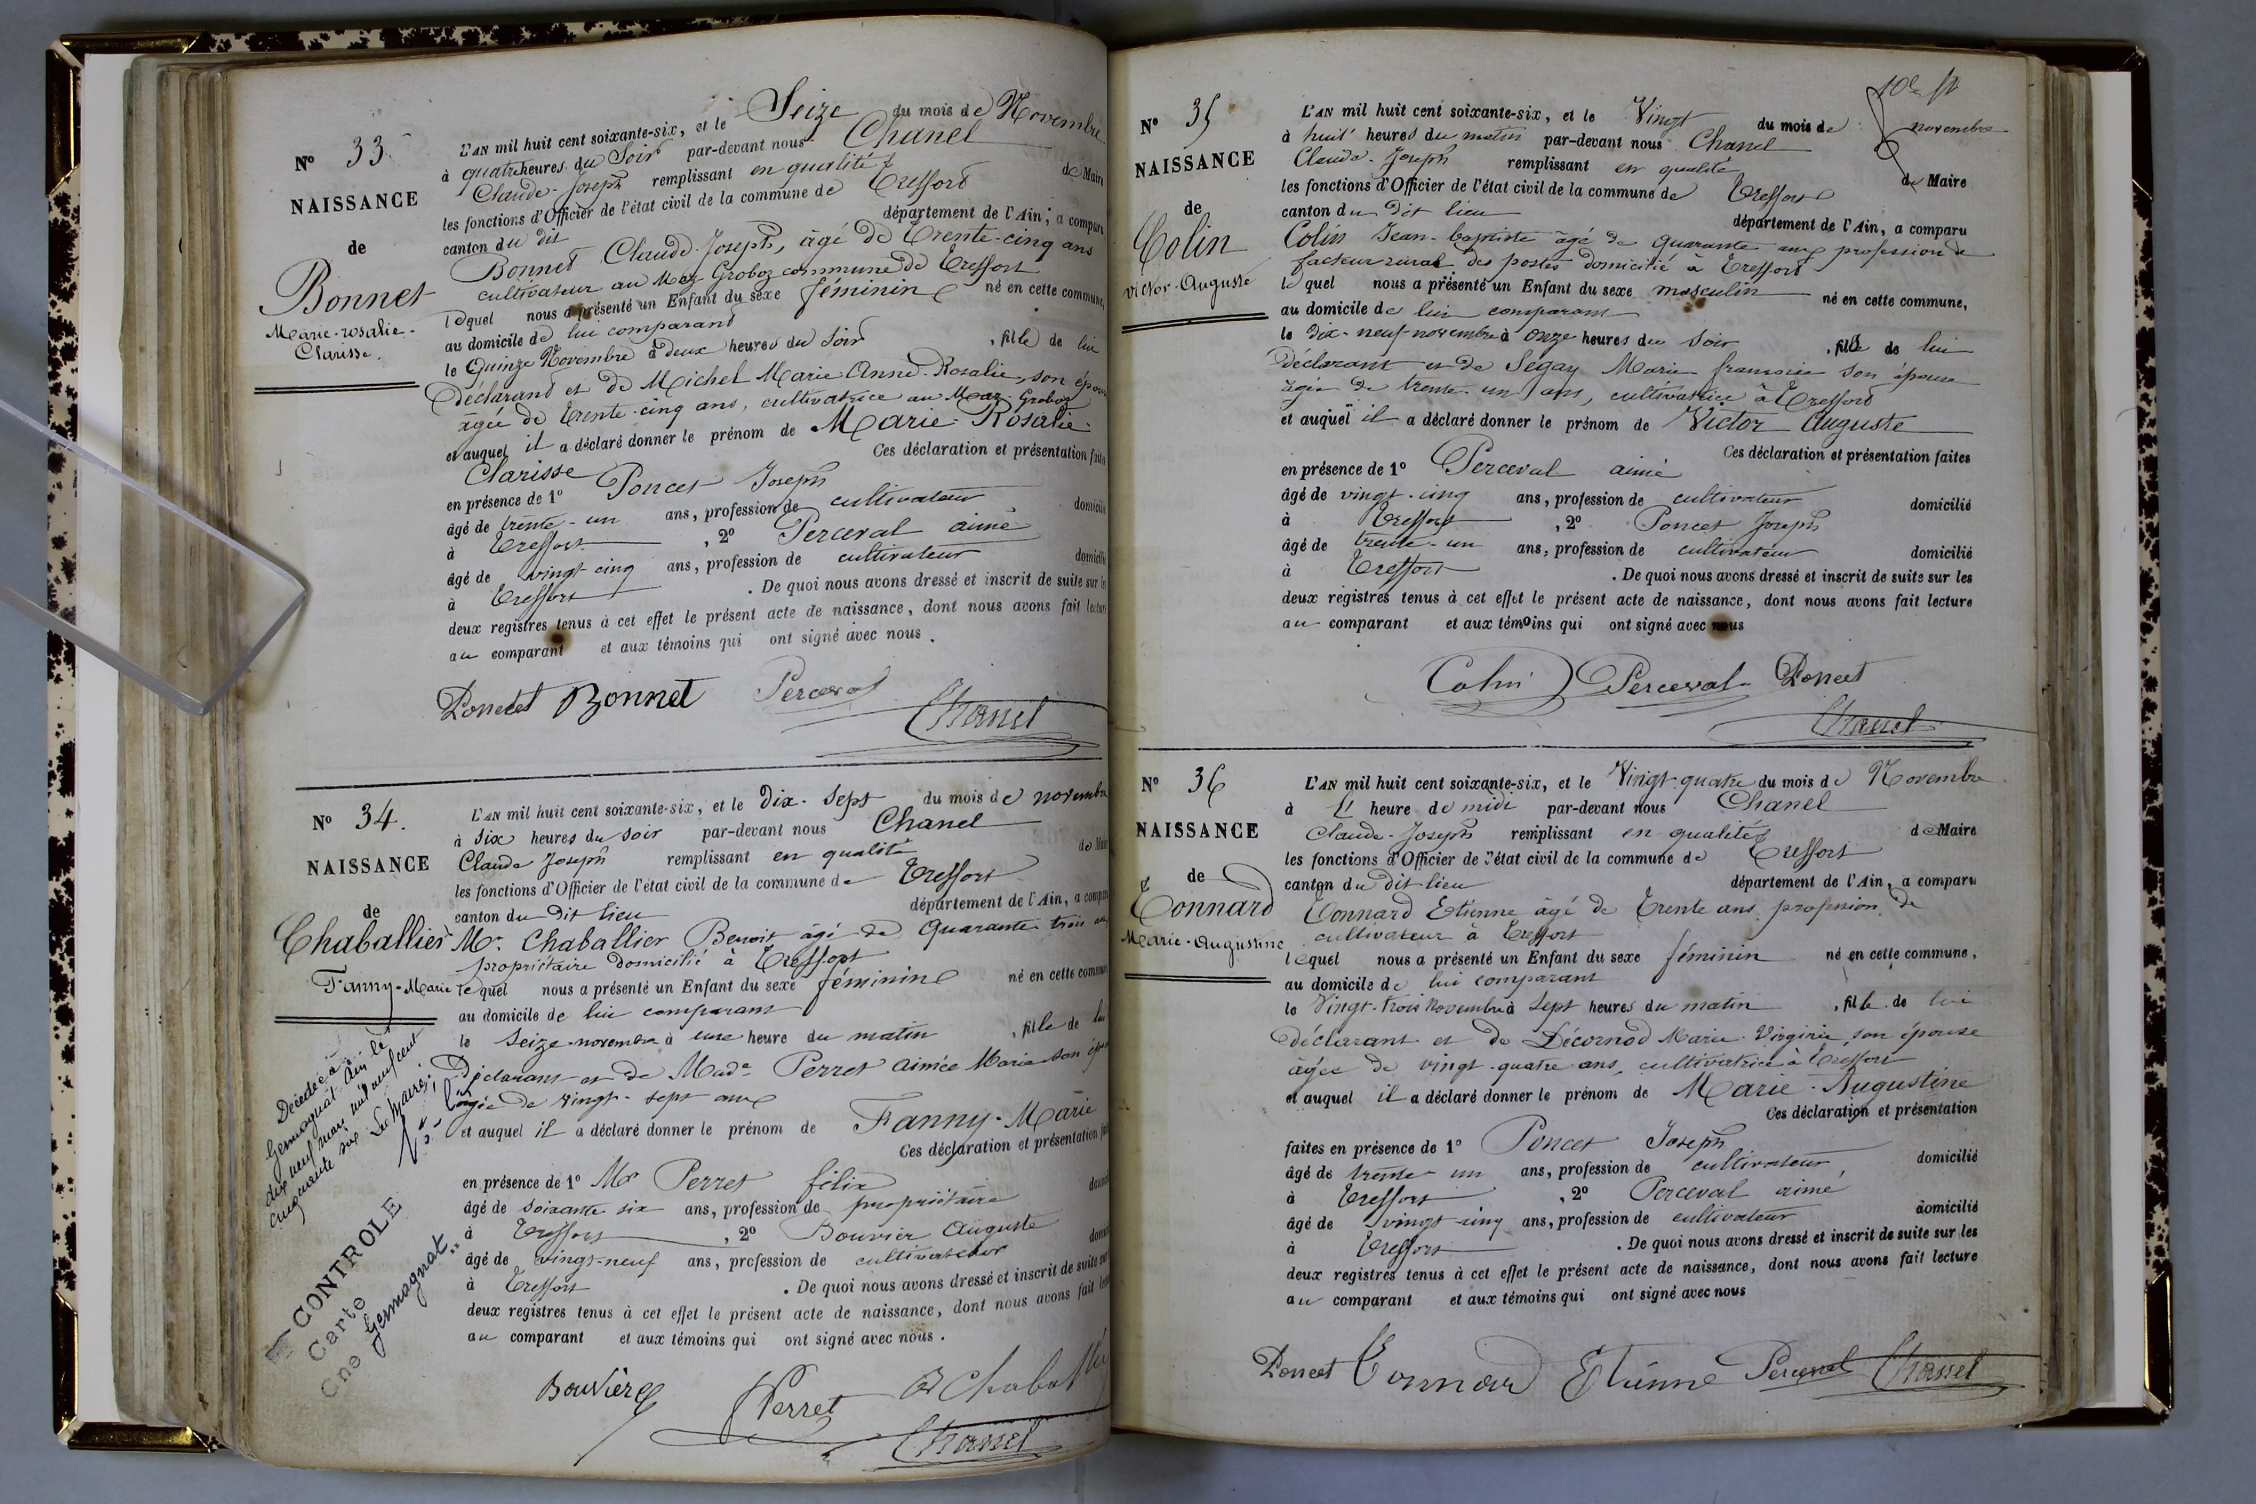 N° 33
NAISSANCE
de
Bonnet
Marie-rosalie-
Clarisse.
L'AN mil huit cent soixante-six, et le Seize du mois de Novembre
à quatre heures du Soir par-devant nous Chanel
Claude-Joseph remplissant en qualité de Maire
les fonctions d'Officier de l'état civil de la commune de Treffort
canton du dit département de l'Ain, a comparu
Bonnet Claude-Joseph, âgé de Trente-cinq ans
cultivateur au Maz Groboz commune de Treffort
lequel nous a présenté un Enfant du sexe féminin né en cette commune,
au domicile de lui comparant
le Quinze Novembre à deux heures du Soir, fille de lui
Déclarant et de Michel Marie-Anne-Rosalie, son épouse
âgée de trente-cinq ans, cultivatrice au Maz-Groboz
et auquel il a déclaré donner le prénom de Marie-Rosalie-
Clarisse Ces déclaration et présentation faites
en présence de 1° Poncet Joseph
âgé de trente-un ans, profession de cultivateur domicilié
à Treffort, 2° Perceval aimé
âgé de vingt cinq ans, profession de cultivateur domicilié
à Treffort. De quoi nous avons dressé et inscrit de suite sur les
deux registres tenus à cet effet le présent acte de naissance, dont nous avons fait lecture
au comparant et aux témoins qui ont signé avec nous.
Poncet Bonnet Perceval
Chanel
N° 34.
NAISSANCE
de
Chaballier
Fanny-Marie
Décédée à
Germagnat Ain le
dix neuf mai mil neuf cent
cinquante six Le Maire:
CONTROLE
Carte
Cne Germagnat
L'AN mil huit cent soixante-six, et le dix-sept du mois de novembre
à six heures du soir par-devant nous Chanel
Claude Joseph remplissant en qualité de Maire
les fonctions d'Officier de l'état civil de la commune de Treffort
canton du dit lieu département de l'Ain, a comparu
Mr. Chaballier Benoit âgé de quarante trois ans
propriétaire domicilié à Treffort
lequel nous a présenté un Enfant du sexe féminin né en cette commune
au domicile de lui comparant
le Seize novembre à une heure du matin, fille de lui
Déclarant et de Made Perret aimée Marie son épouse
âgée de vingt-sept ans
et auquel il a déclaré donner le prénom de Fanny-Marie
Ces déclaration et présentation faites
en présence de 1° Mr Perret félix
âgé de soixante six ans, profession de propriétaire domicilié
à Treffort, 2° Bouvier Auguste
âgé de vingt-neuf ans, profession de cultivateur domicilié
à Treffort. De quoi nous avons dressé et inscrit de suite sur
deux registres tenus à cet effet le présent acte de naissance, dont nous avons fait lecture
au comparant et aux témoins qui ont signé avec nous.
Bouvier Perret Chaballier
Chanel
N° 35
NAISSANCE
de
Colin
victor-Auguste
L'AN mil huit cent soixante-six, et le Vingt du mois de novembre
à huit heures du matin par-devant nous Chanel
Claude-Joseph remplissant en qualité de Maire
les fonctions d'Officier de l'état civil de la commune de Treffort
canton du dit lieu département de l'Ain, a comparu
Colin Jean-baptiste âgé de quarante ans profession de
facteur rural des postes domicilié à Treffort
lequel nous a présenté un Enfant du sexe masculin né en cette commune,
au domicile de lui comparant
le dix-neuf novembre à onze heures du soir, fils de lui
Déclarant et de Segay Marie françoise son épouse
âgée de trente-un ans, cultivatrice à Treffort
et auquel il a déclaré donner le prénom de Victor Auguste
Ces déclaration et présentation faites
en présence de 1° Perceval aimé
âgé de vingt-cinq ans, profession de cultivateur domicilié
à Treffort, 2° Poncet Joseph
âgé de trente-un ans, profession de cultivateur domicilié
à Treffort. De quoi nous avons dressé et inscrit de suite sur les
deux registres tenus à cet effet le présent acte de naissance, dont nous avons fait lecture
au comparant et aux témoins qui ont signé avec nous
Colin Perceval Poncet
Chanel
N° 36
NAISSANCE
de
Tonnard
Marie-Augustine
L'AN mil huit cent soixante-six, et le Vingt-quatre du mois de Novembre
à L' heure de midi par-devant nous Chanel
Claude-Joseph remplissant en qualité de Maire
les fonctions d'Officier de l'état civil de la commune de Treffort
canton du dit lieu département de l'Ain, a comparu
Tonnard Etienne âgé de Trente ans profession de
cultivateur à Treffort
lequel nous a présenté un Enfant du sexe féminin né en cette commune,
au domicile de lui comparant
le Vingt-trois novembre à sept heures du matin, fille de lui
déclarant et de Décornod Marie Virginie son épouse
âgée de vingt-quatre ans, cultivatrice à Treffort
et auquel il a déclaré donner le prénom de Marie-Augustine
Ces déclaration et présentation
faites en présence de 1° Poncet Joseph
âgé de trente un ans, profession de cultivateur, domicilié
à Treffort, 2° Perceval aimé
âgé de vingt-cinq ans, profession de cultivateur domicilié
à Treffort. De quoi nous avons dressé et inscrit de suite sur les
deux registres tenus à cet effet le présent acte de naissance, dont nous avons fait lecture
au comparant et aux témoins qui ont signé avec nous
Poncet Tonnard Etienne Perceval Chanel